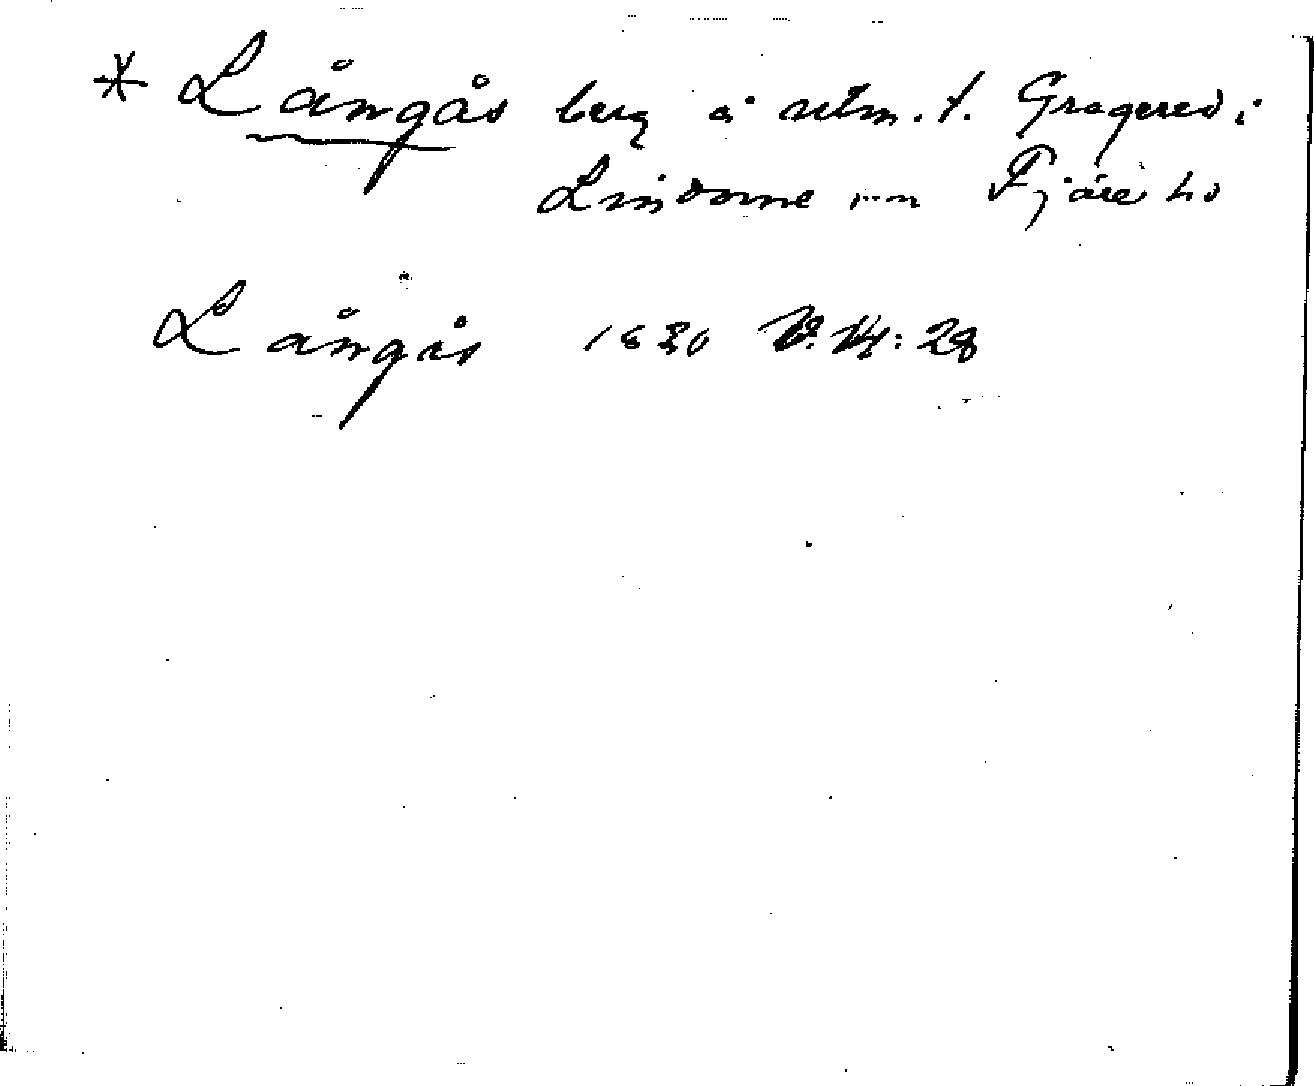 * Långås berg å utm. t. Gragered i
Lindome sn Fjäre hd
Långås 1630 28